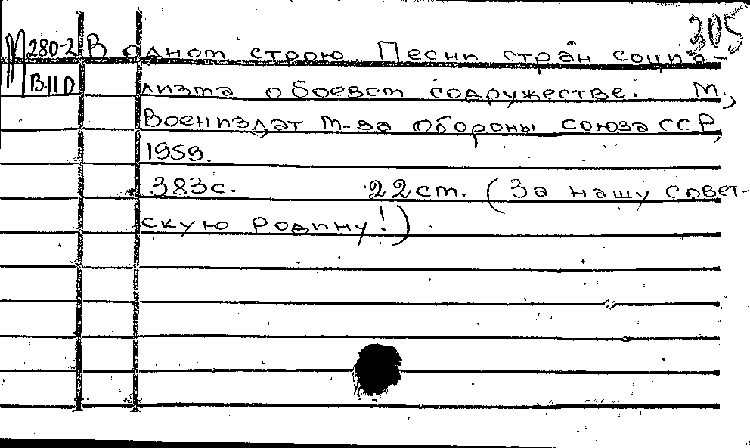 305
П 280-2 В одном строю. Песни стран социа-
В-11 D лизма о боевом содружестве. М.,
Воениздат М-ва обороны Союза ССР,
1959.
383с. 22 см. (За нашу совет-
скую Родину!)